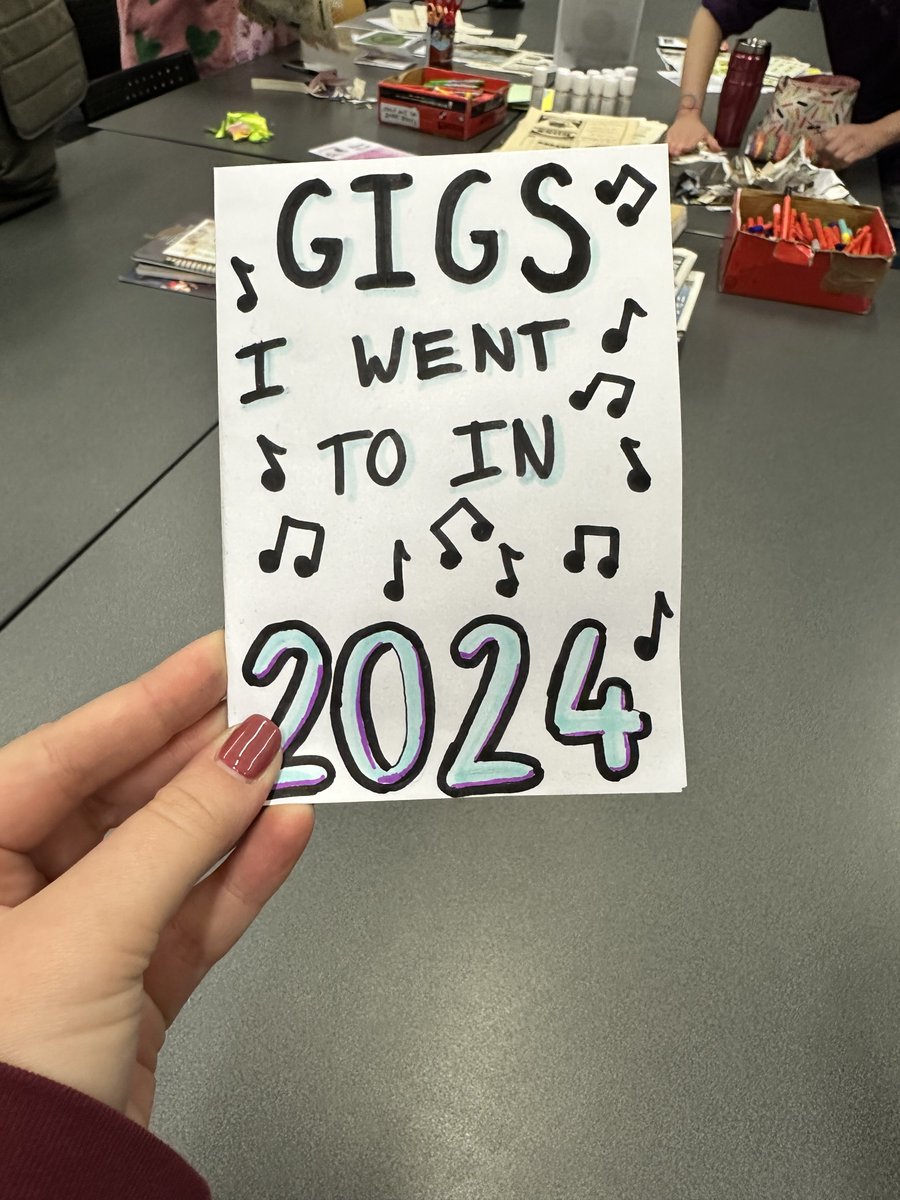 GIGS
I WENT
TO IN
2024